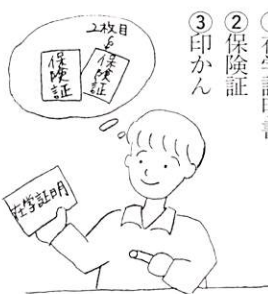 在学証明書
②保険証
③印かん
2枚目
保険証
保険証
在学証明